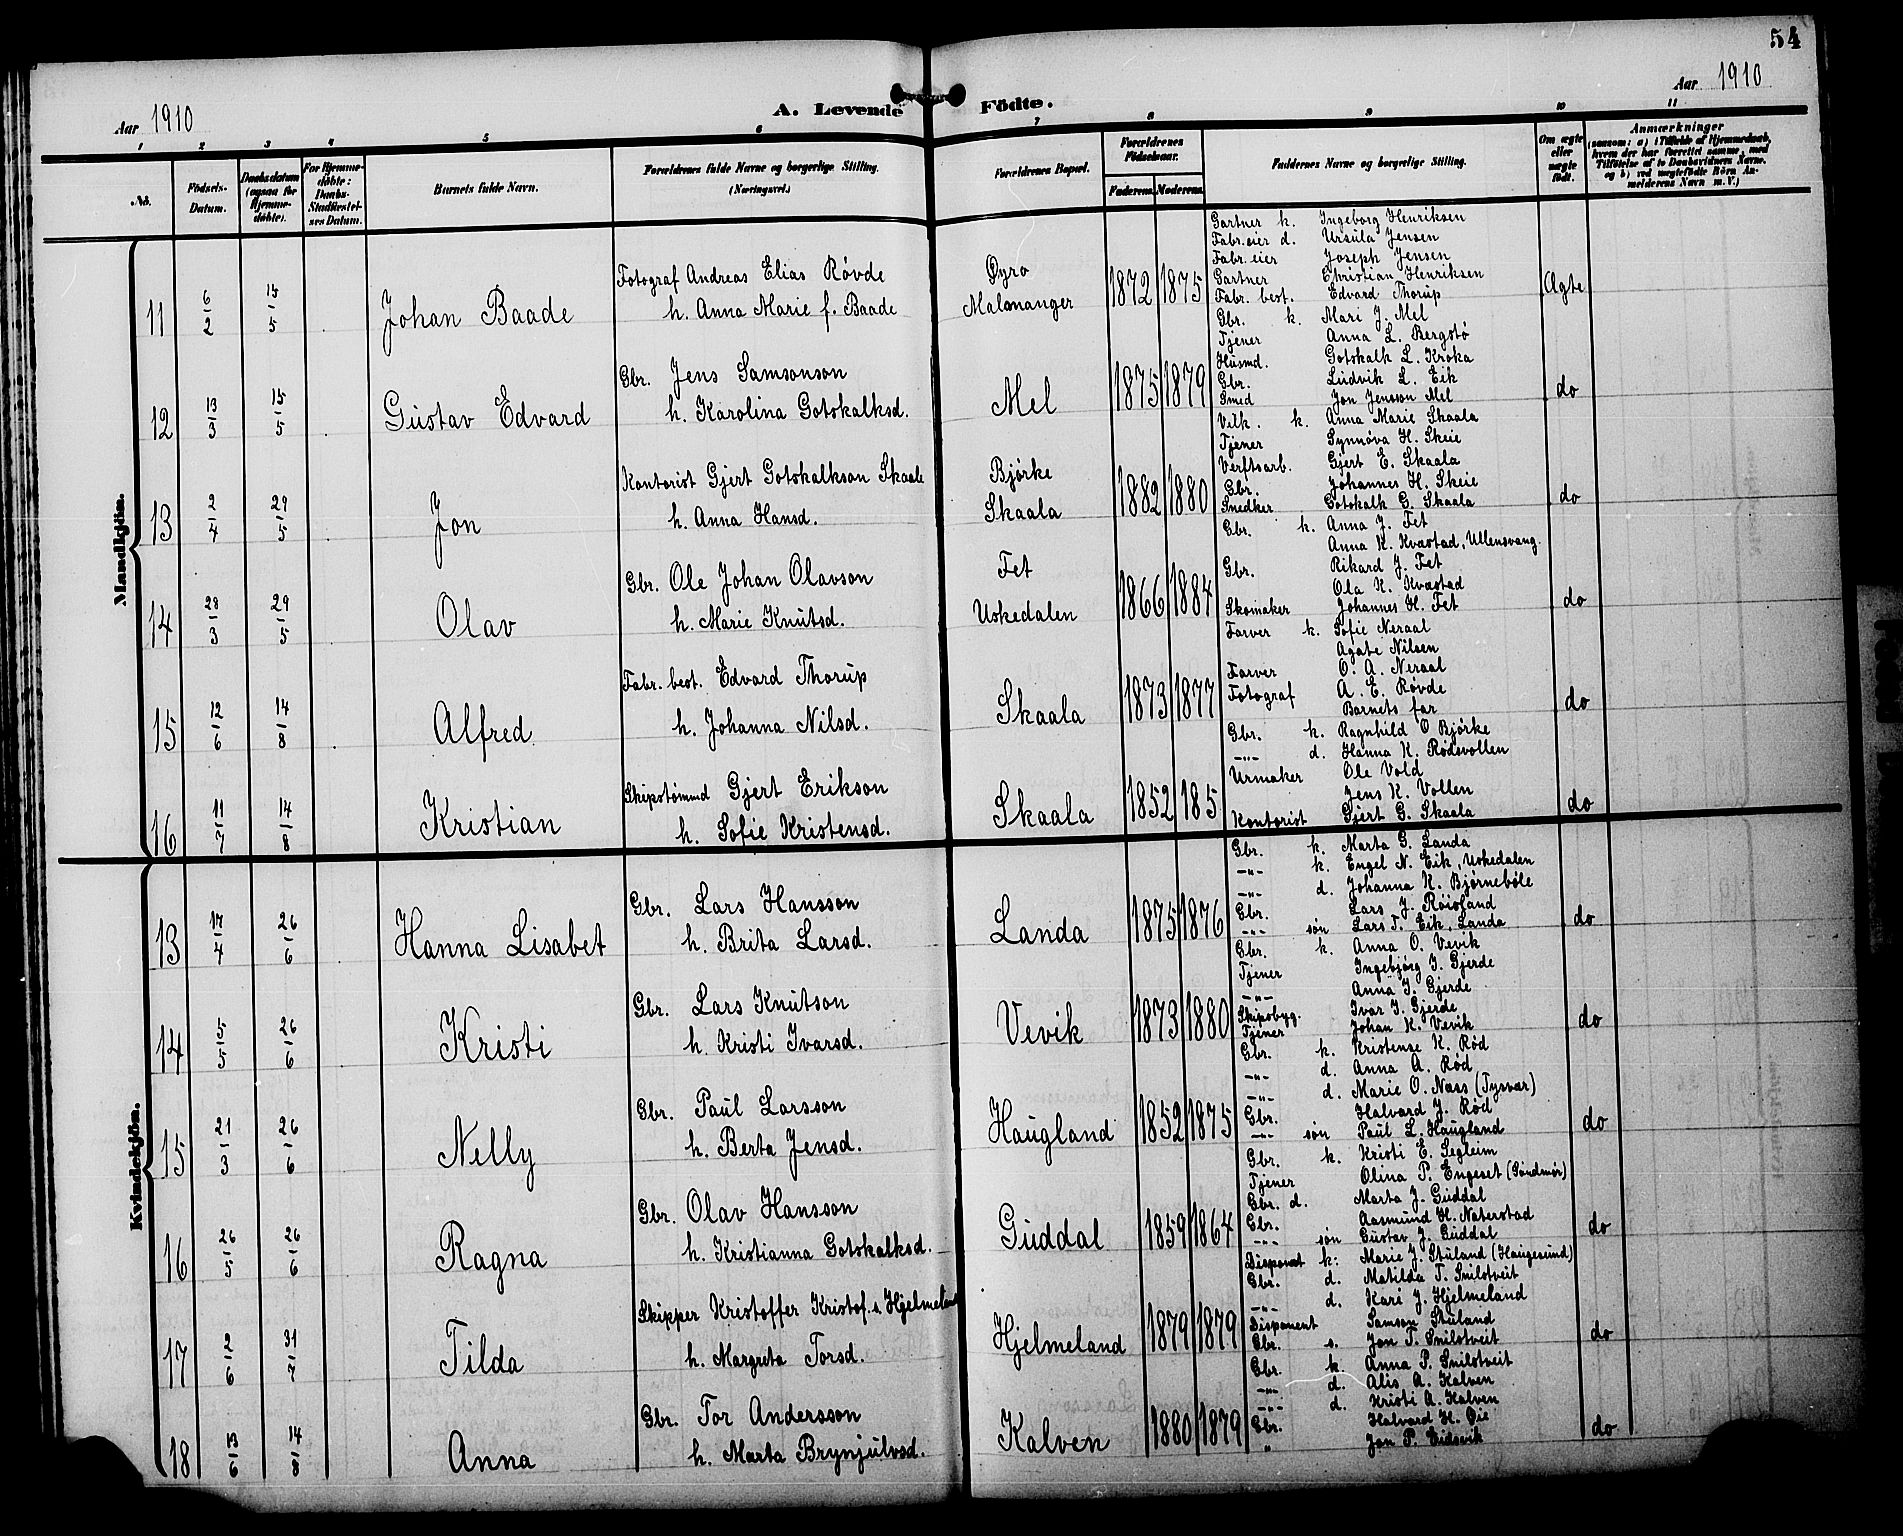 54
Aar 1910
A. Levende Födte.
Aar 1910
1 2 3 4 5 6 7 8 9 10 11
No.
Födsels-Datum.
Daabsdatum (ogsaa for Hjemme-döbte).
For Hjemme-döbte: Daabs-Stadfæstel-ses Datum.
Barnets fulde Navn.
Forældrenes fulde Navne og borgerlige Stilling. (Næringsvei.)
Forældrenes Bopæl.
Forældrenes Födselsaar.
Faderens. Moderens.
Faddernes Navne og borgerlige Stilling.
Om ægte eller uægte födt.
Anmærkninger
(saasom: a) i Tilfælde af Hjemmedaab, hvem der har forrettet samme, med Tilföielse af to Daabsvidners Navne, og b) ved uægtefödte Börn Anmelderens Navn m. V.)
Mandkjön.
11 6/2 15/5 Johan Baade
Fotograf Andreas Elias Røvde
h. Anna Marie f. Baade
Øyro
Malmanger
1872 1875
Gartner k. Ingeborg Henriksen
Fabr.eier d. Ursula Jensen
Fabr.eier Joseph Jensen
Gartner Christian Henriksen
Fabr. best. Edvard Thorup
Ægte
12 13/3 15/5 Gustav Edvard
Gbr. Jens Samsonson
h. Karolina Gotskalksd.
Mel
1875 1879
Gbr. k. Mari J. Mel
Tjener Anna L. Bergstø
Husmd. Gotskalk L. Kroka
Gbr. Ludvik L. Eik
Smed Jon Jensson Mel
do
13 2/4 29/5 Jon
Kontorist Gjert Gotskalkson Skaala
h. Anna Hansd.
Bjørke
Skaala
1882 1880
k. Anna Marie Skaala
Tjener Synnøva H. Skeie
Verftsarb. Gjert E. Skaala
Gbr. Johannes H. Skeie
Snedker Gotskalk G. Skaala
do
14 28/3 29/5 Olav
Gbr. Ole Johan Olavson
h. Marie Knutsd.
Fet
Uskedalen
1866 1884
Gbr. k. Anna J. Fet
Anna K. Kvæstad, Ullensvang.
Gbr. Rikard J. Fet
Ola K. Kvæstad
Skomaker Johannes H. Fet
do
15 12/6 14/8 Alfred
Fabr. best. Edvard Thorup
h. Johanna Nilsd.
Skaala
1873 1877
Farver k. Sofie Neraal
Agate Nilsen
Farver O. A. Neraal
Fotograf A. E. Røvde
Barnets far
do
16 11/7 14/8 Kristian
Skipstømmd Gjert Erikson
h. Sofie Kristensd.
Skaala
1852 185
Gbr. k. Ragnhild O Bjørke
-"- d. Hanna K. Rødsvollen
Urmaker Ole Vold
Jens K. Vollen
Kontorist Gjert G. Skaala
do
Kvindekjön.
13 17/4 26/6 Hanna Lisabet
Gbr. Lars Hansson
h. Brita Larsd.
Landa
1875 1876
Gbr. k. Marta G. Landa
-"- k. Engel N. Eik, Uskedalen
-"- d. Johanna K. Bjørnebøle
Gbr. Lars J. Røisland
-"- søn Lars T. Eik, Landa
do
14 5/5 26/6 Kristi
Gbr. Lars Knutson
h. Kristi Ivarsd.
Vevik
1873 1880
Gbr. k. Anna O. Vevik
Tjener Ingebjørg I. Gjerde
-"- Anna I. Gjerde
Skipsbyg. Ivar I. Gjerde
Tjener Johan K. Vevik
do
15 21/3 26/6 Nelly
Gbr. Paul Larsson
h. Berta Jensd.
Haugland
1852 1875
Gbr. k. Kristense K. Rød
-"- d. Anna A. Rød
-"- d. Marie O. Næss (Tysvær)
Gbr. Halvard J. Rød
-"- søn Paul L. Haugland
do
16 26/5 26/6 Ragna
Gbr. Olav Hansson
h. Kristianna Gotskalksd.
Guddal
1859 1864
Gbr. k. Kristi E. Segleim
Tjener Olina P. Engeset (Søndmør)
Gbr. d. Marta J. Guddal
Gbr. Aasmund H. Naterstad
-"- søn Gustav J. Guddal
do
17 2/6 31/7 Tilda
Skipper Kristoffer Kristof.s. Hjelmeland
h. Margreta Torsd.
Hjelmeland
1879 1879
Disponent k. Marie J. Stuland (Haugesund)
Gbr. d. Matilda T. Snilstveit
-"- d. Kari J. Hjelmeland
Disponent Samson Stuland
Gbr. s. Jon T. Snilstveit
do
18 13/6 14/8 Anna
Gbr. Tor Andersson
h. Marta Brynjulvsd.
Kalven
1880 1879
Gbr. k. Anna P. Snilstveit
-"- d. Alis A. Kalven
-"- d. Kristi A. Kalven
Gbr. Halvard H. Øie
" Jon P. Eidsvik
do